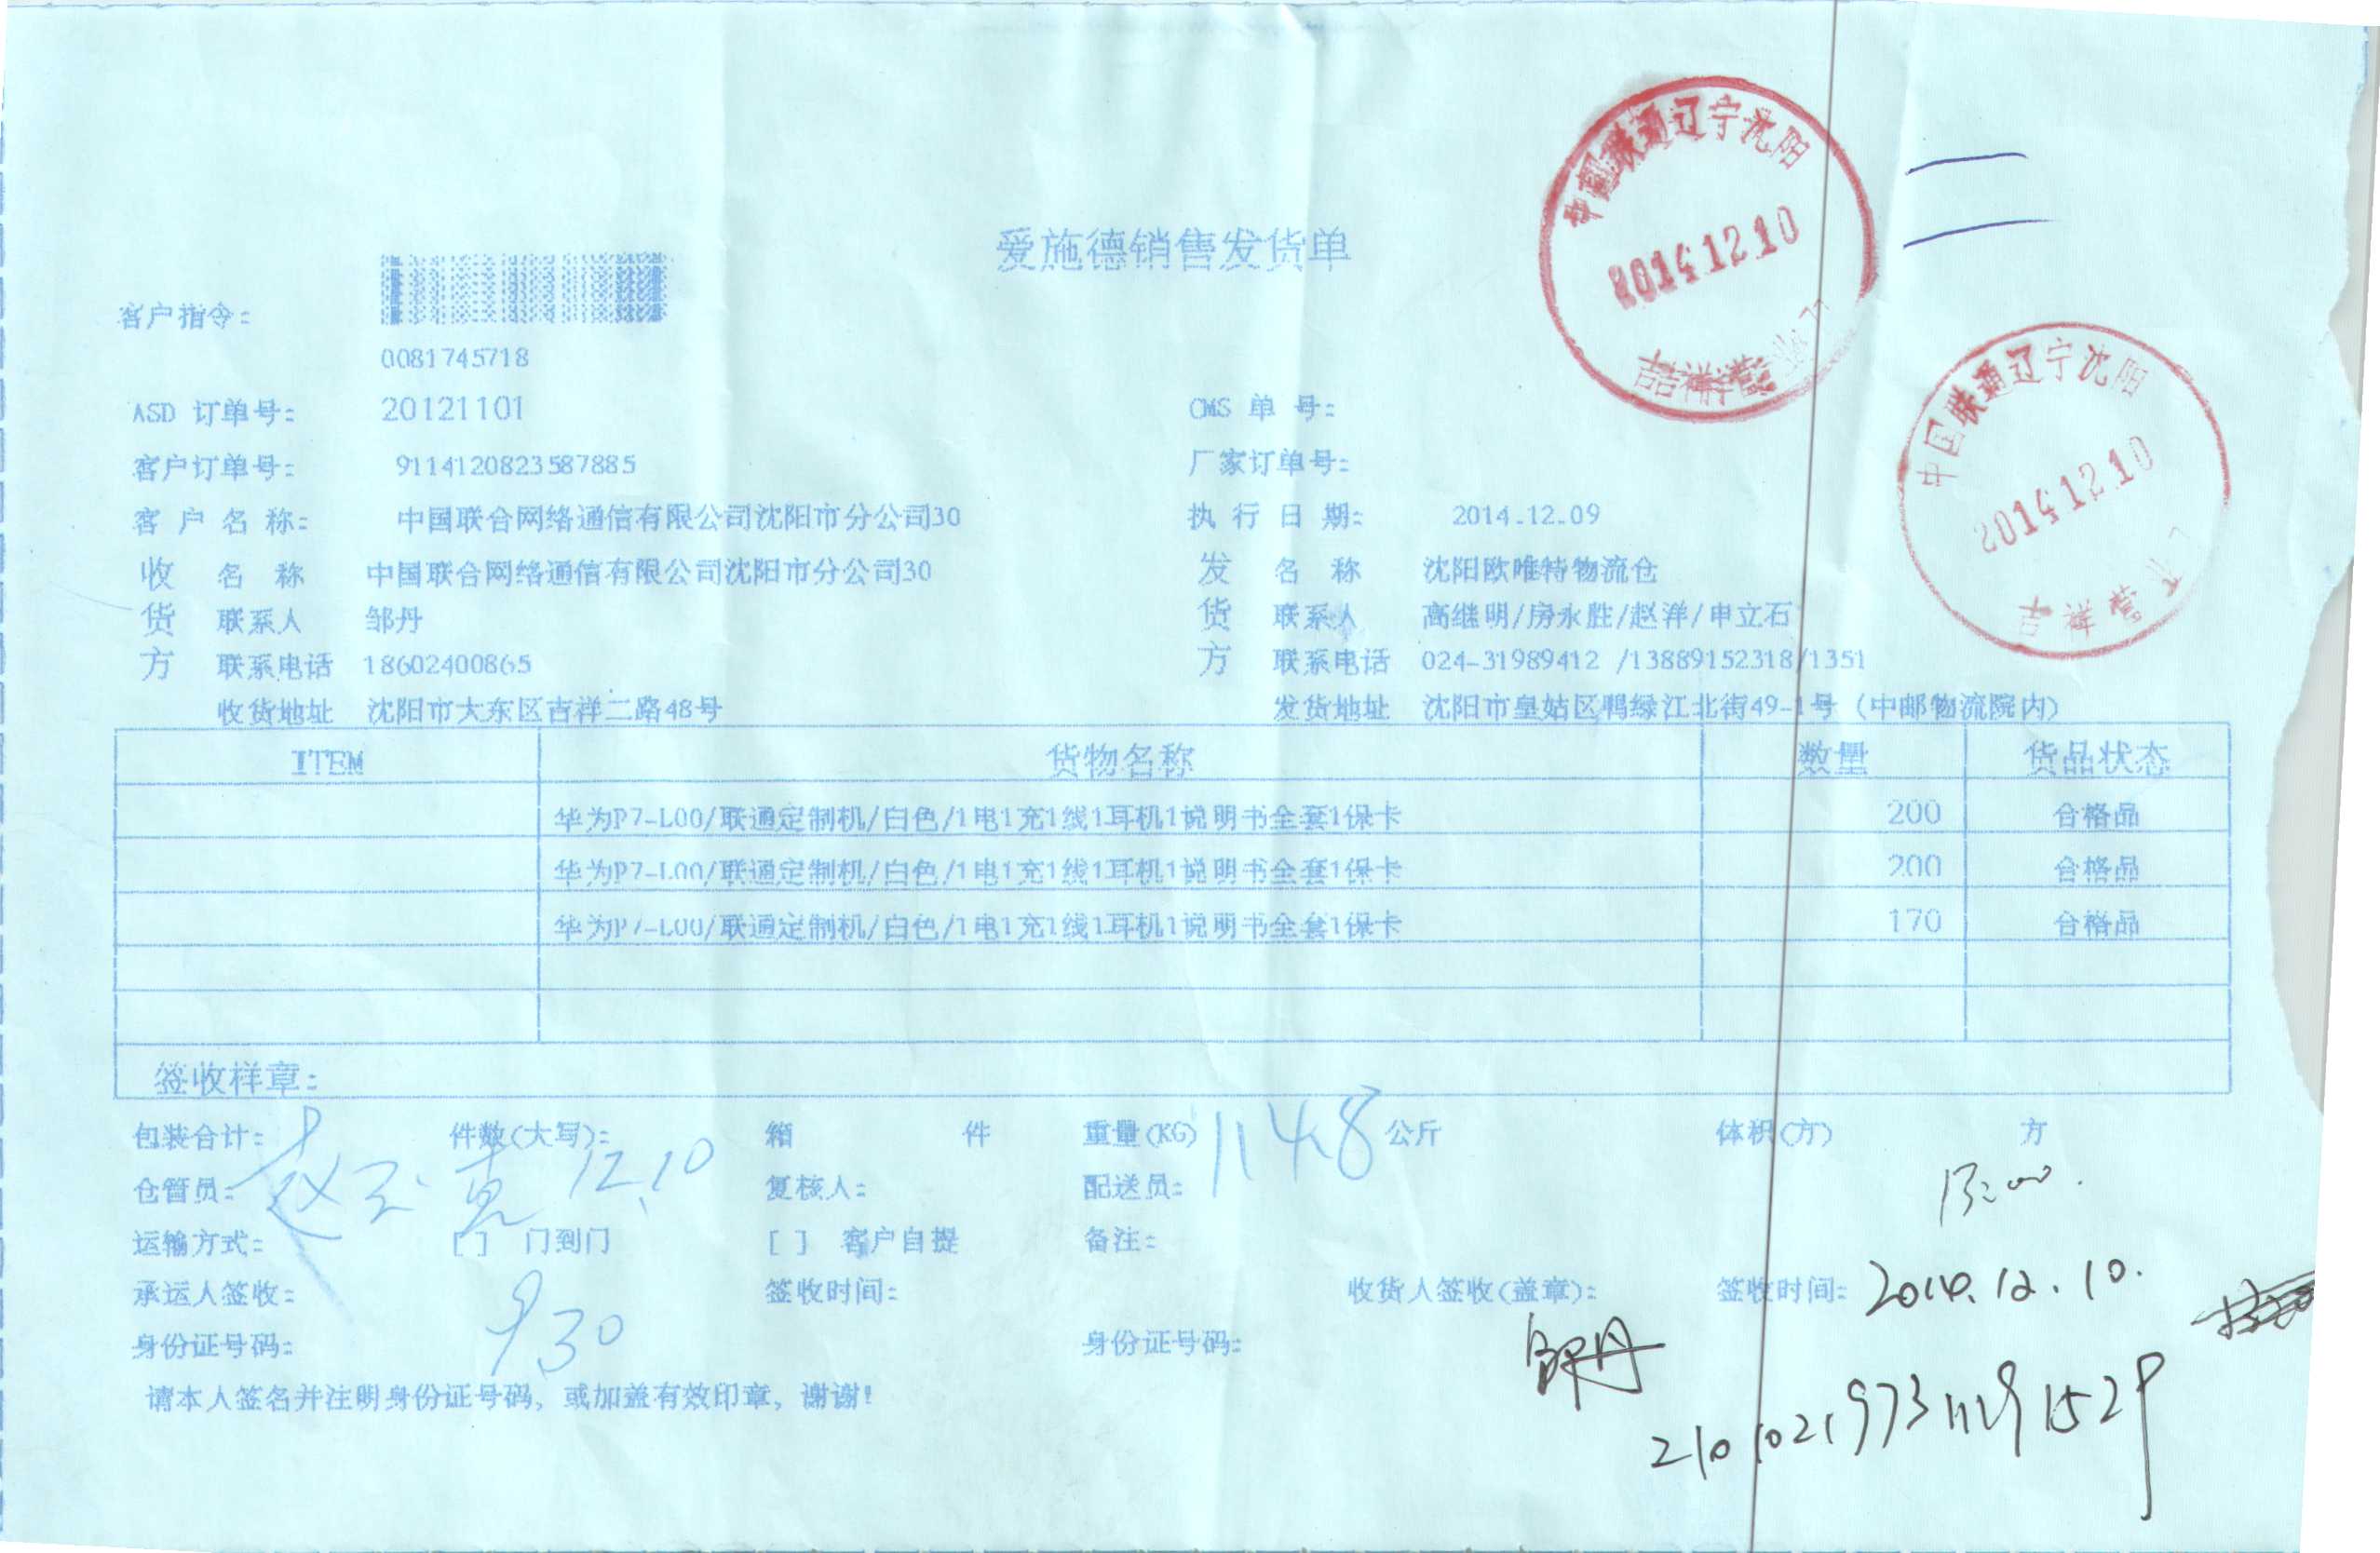 爱施德销售发货单
中国联通辽宁沈阳
2014.12.10
吉祥营业厅
中国联通辽宁沈阳
2014.12.10
吉祥营
客户指令:
0081745718
ASD 订单号: 20121101 OMS 单 号:
客户订单号: 9114120823587885 厂家订单号:
客 户 名 称: 中国联合网络通信有限公司沈阳市分公司30 执 行 日 期: 2014.12.09
收 名 称 中国联合网络通信有限公司沈阳市分公司30 发 名 称 沈阳欧唯特物流仓
货 联系人 邹丹 货 联系人 高继明/房永胜/赵洋/申立石
方 联系电话 18602400865 方 联系电话 024-31989412 /13889152318/1351
收货地址 沈阳市大东区吉祥二路48号 发货地址 沈阳市皇姑区鸭绿江北街49-1号 (中邮物流院内)
ITEM 货物名称 数量 货品状态
华为P7-L00/联通定制机/白色/1电1充1线1耳机1说明书全套1保卡 200 合格品
华为P7-L00/联通定制机/白色/1电1充1线1耳机1说明书全套1保卡 200 合格品
华为P7-L00/联通定制机/白色/1电1充1线1耳机1说明书全套1保卡 170 合格品
签收样章:
包装合计: 件数(大写): 箱 件 重量(KG) 1148 公斤 体积(方) 方
12.10
仓管员: 复核人: 配送员:
运输方式: [ ] 门到门 [ ] 客户自提 备注:
承运人签收: 签收时间: 收货人签收(盖章): 签收时间: 2014.12.10.
9.30 邹丹
身份证号码: 身份证号码:
请本人签名并注明身份证号码, 或加盖有效印章, 谢谢!